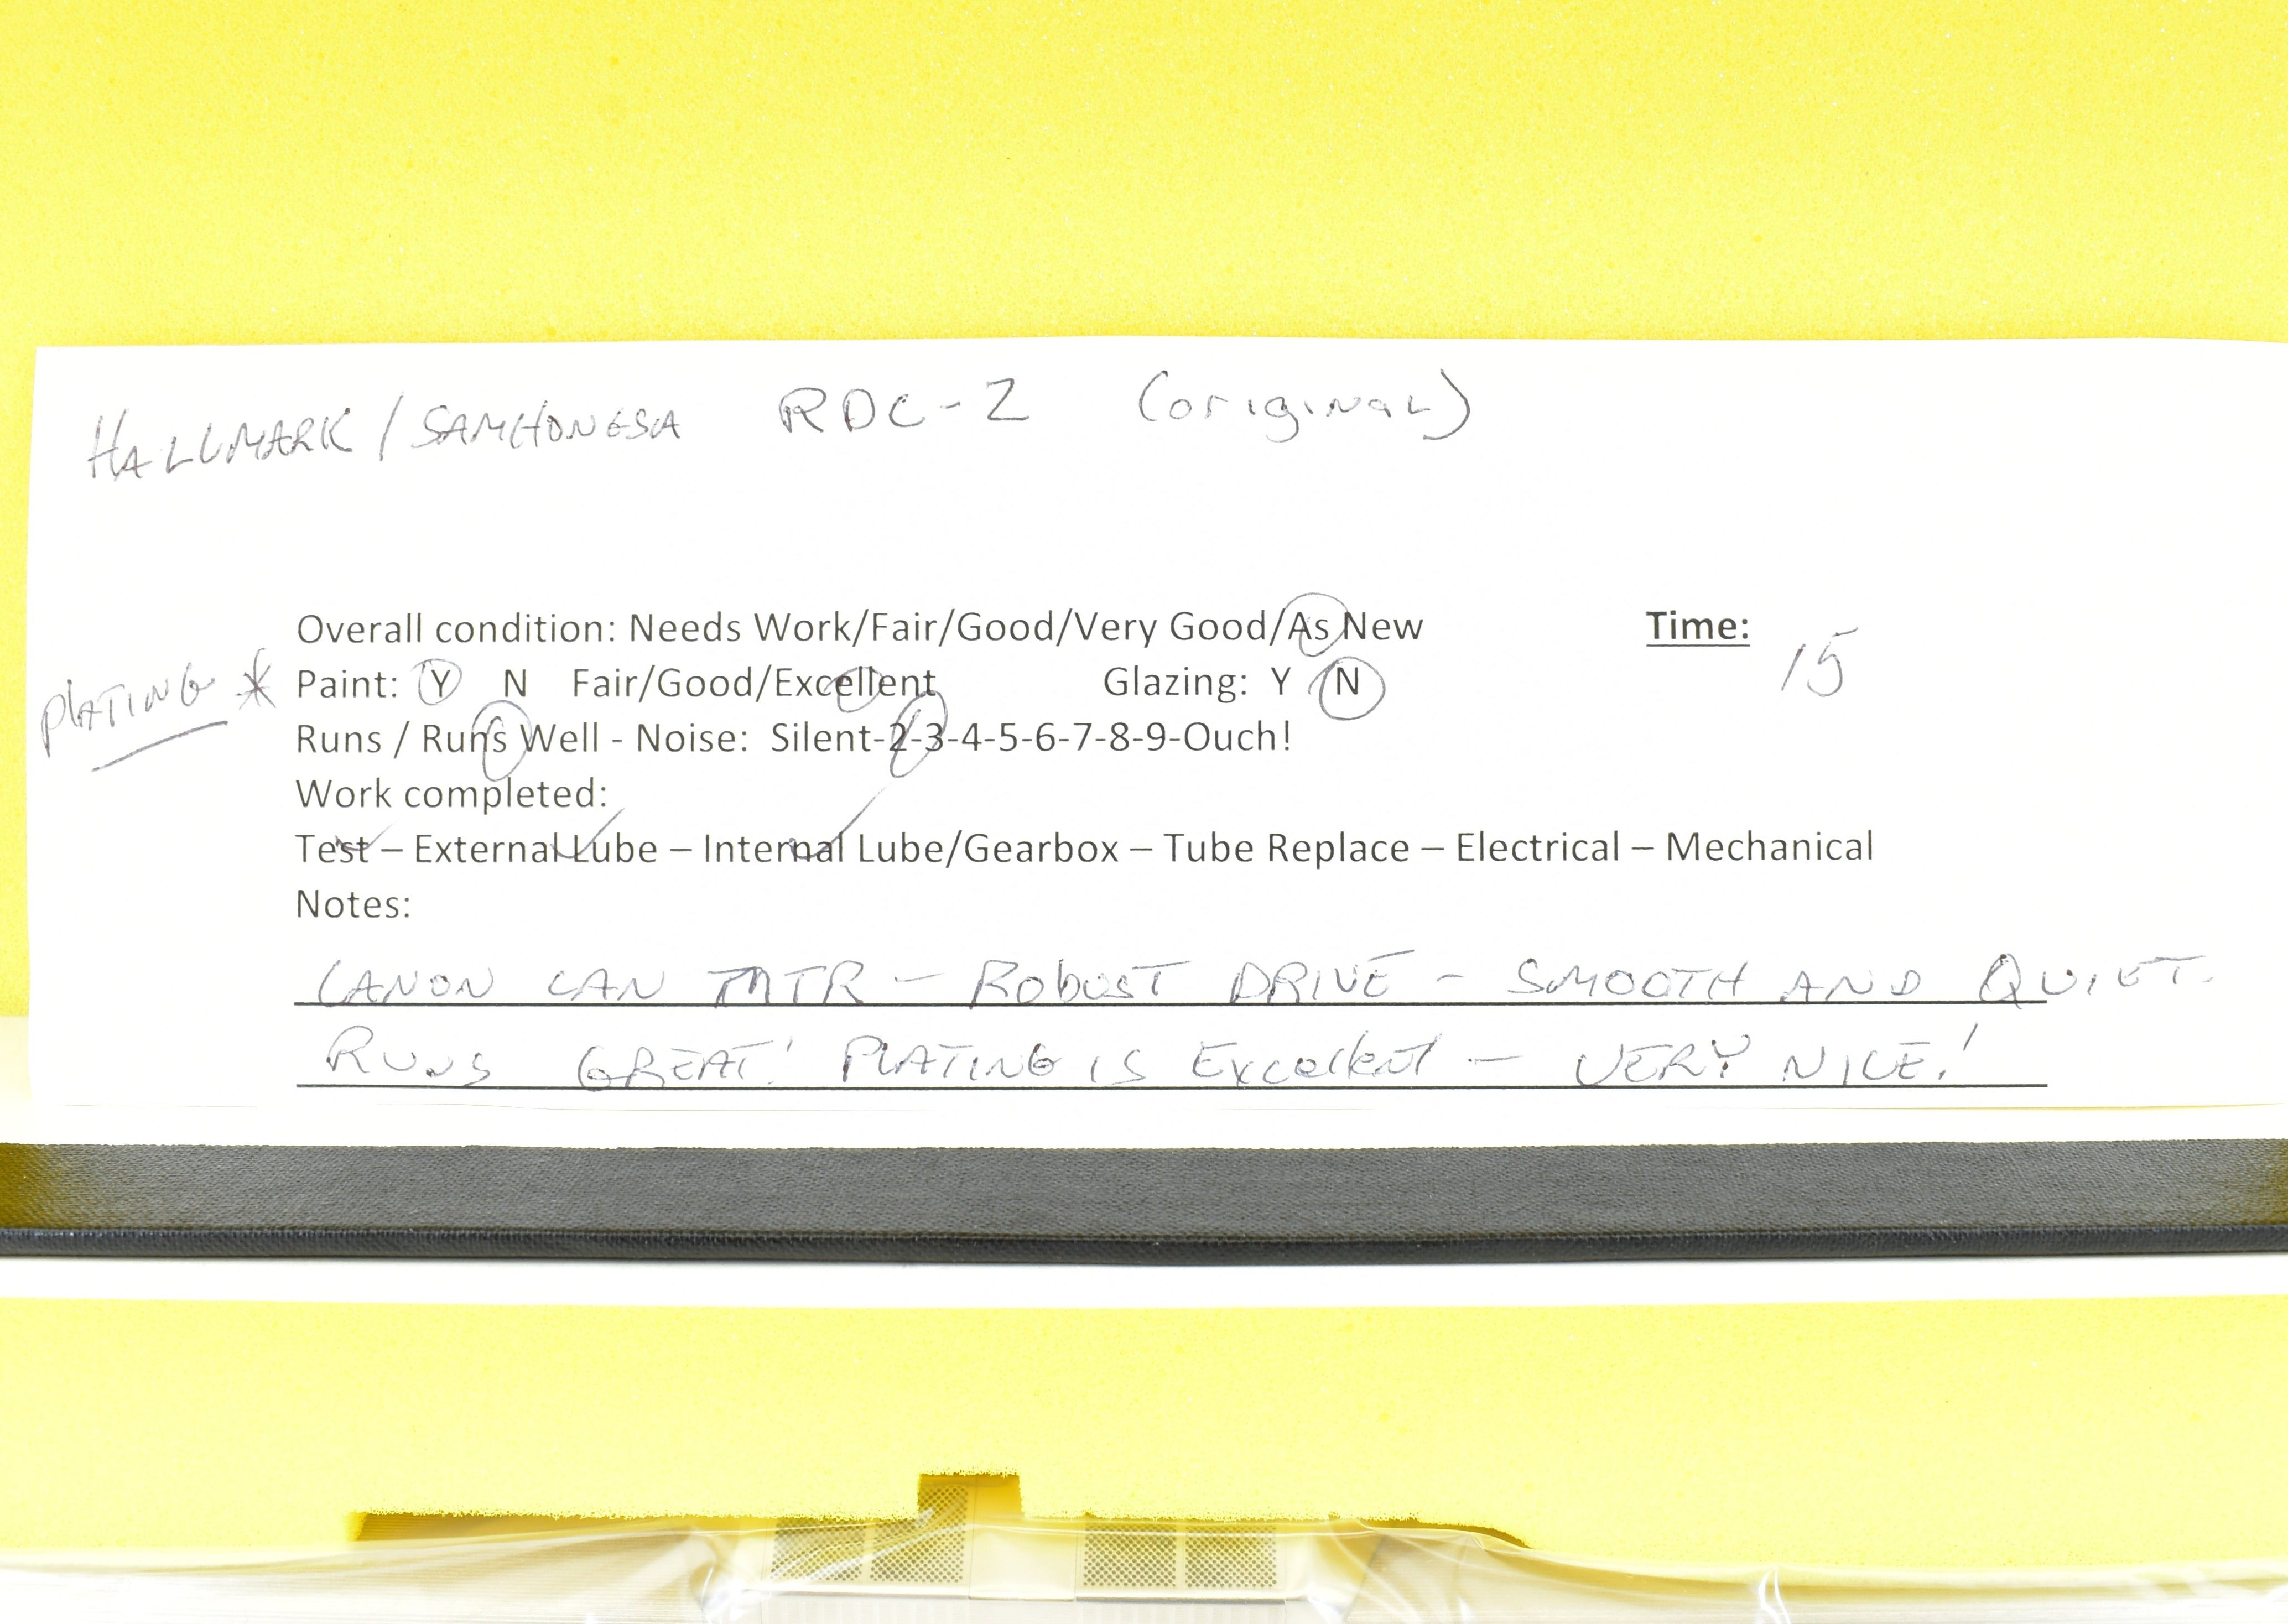 HALLMARK / SAMHONGSA RDC-2 (original)
Overall condition: Needs Work/Fair/Good/Very Good/As New Time: 15
PLATING * Paint: Y N Fair/Good/Excellent Glazing: Y N
Runs / Runs Well - Noise: Silent-2-3-4-5-6-7-8-9-Ouch!
Work completed:
Test – External Lube – Internal Lube/Gearbox – Tube Replace – Electrical – Mechanical
Notes:
CANON CAN MTR – ROBUST DRIVE – SMOOTH AND QUIET.
RUNS GREAT! PLATING IS Excellent – VERY NICE!